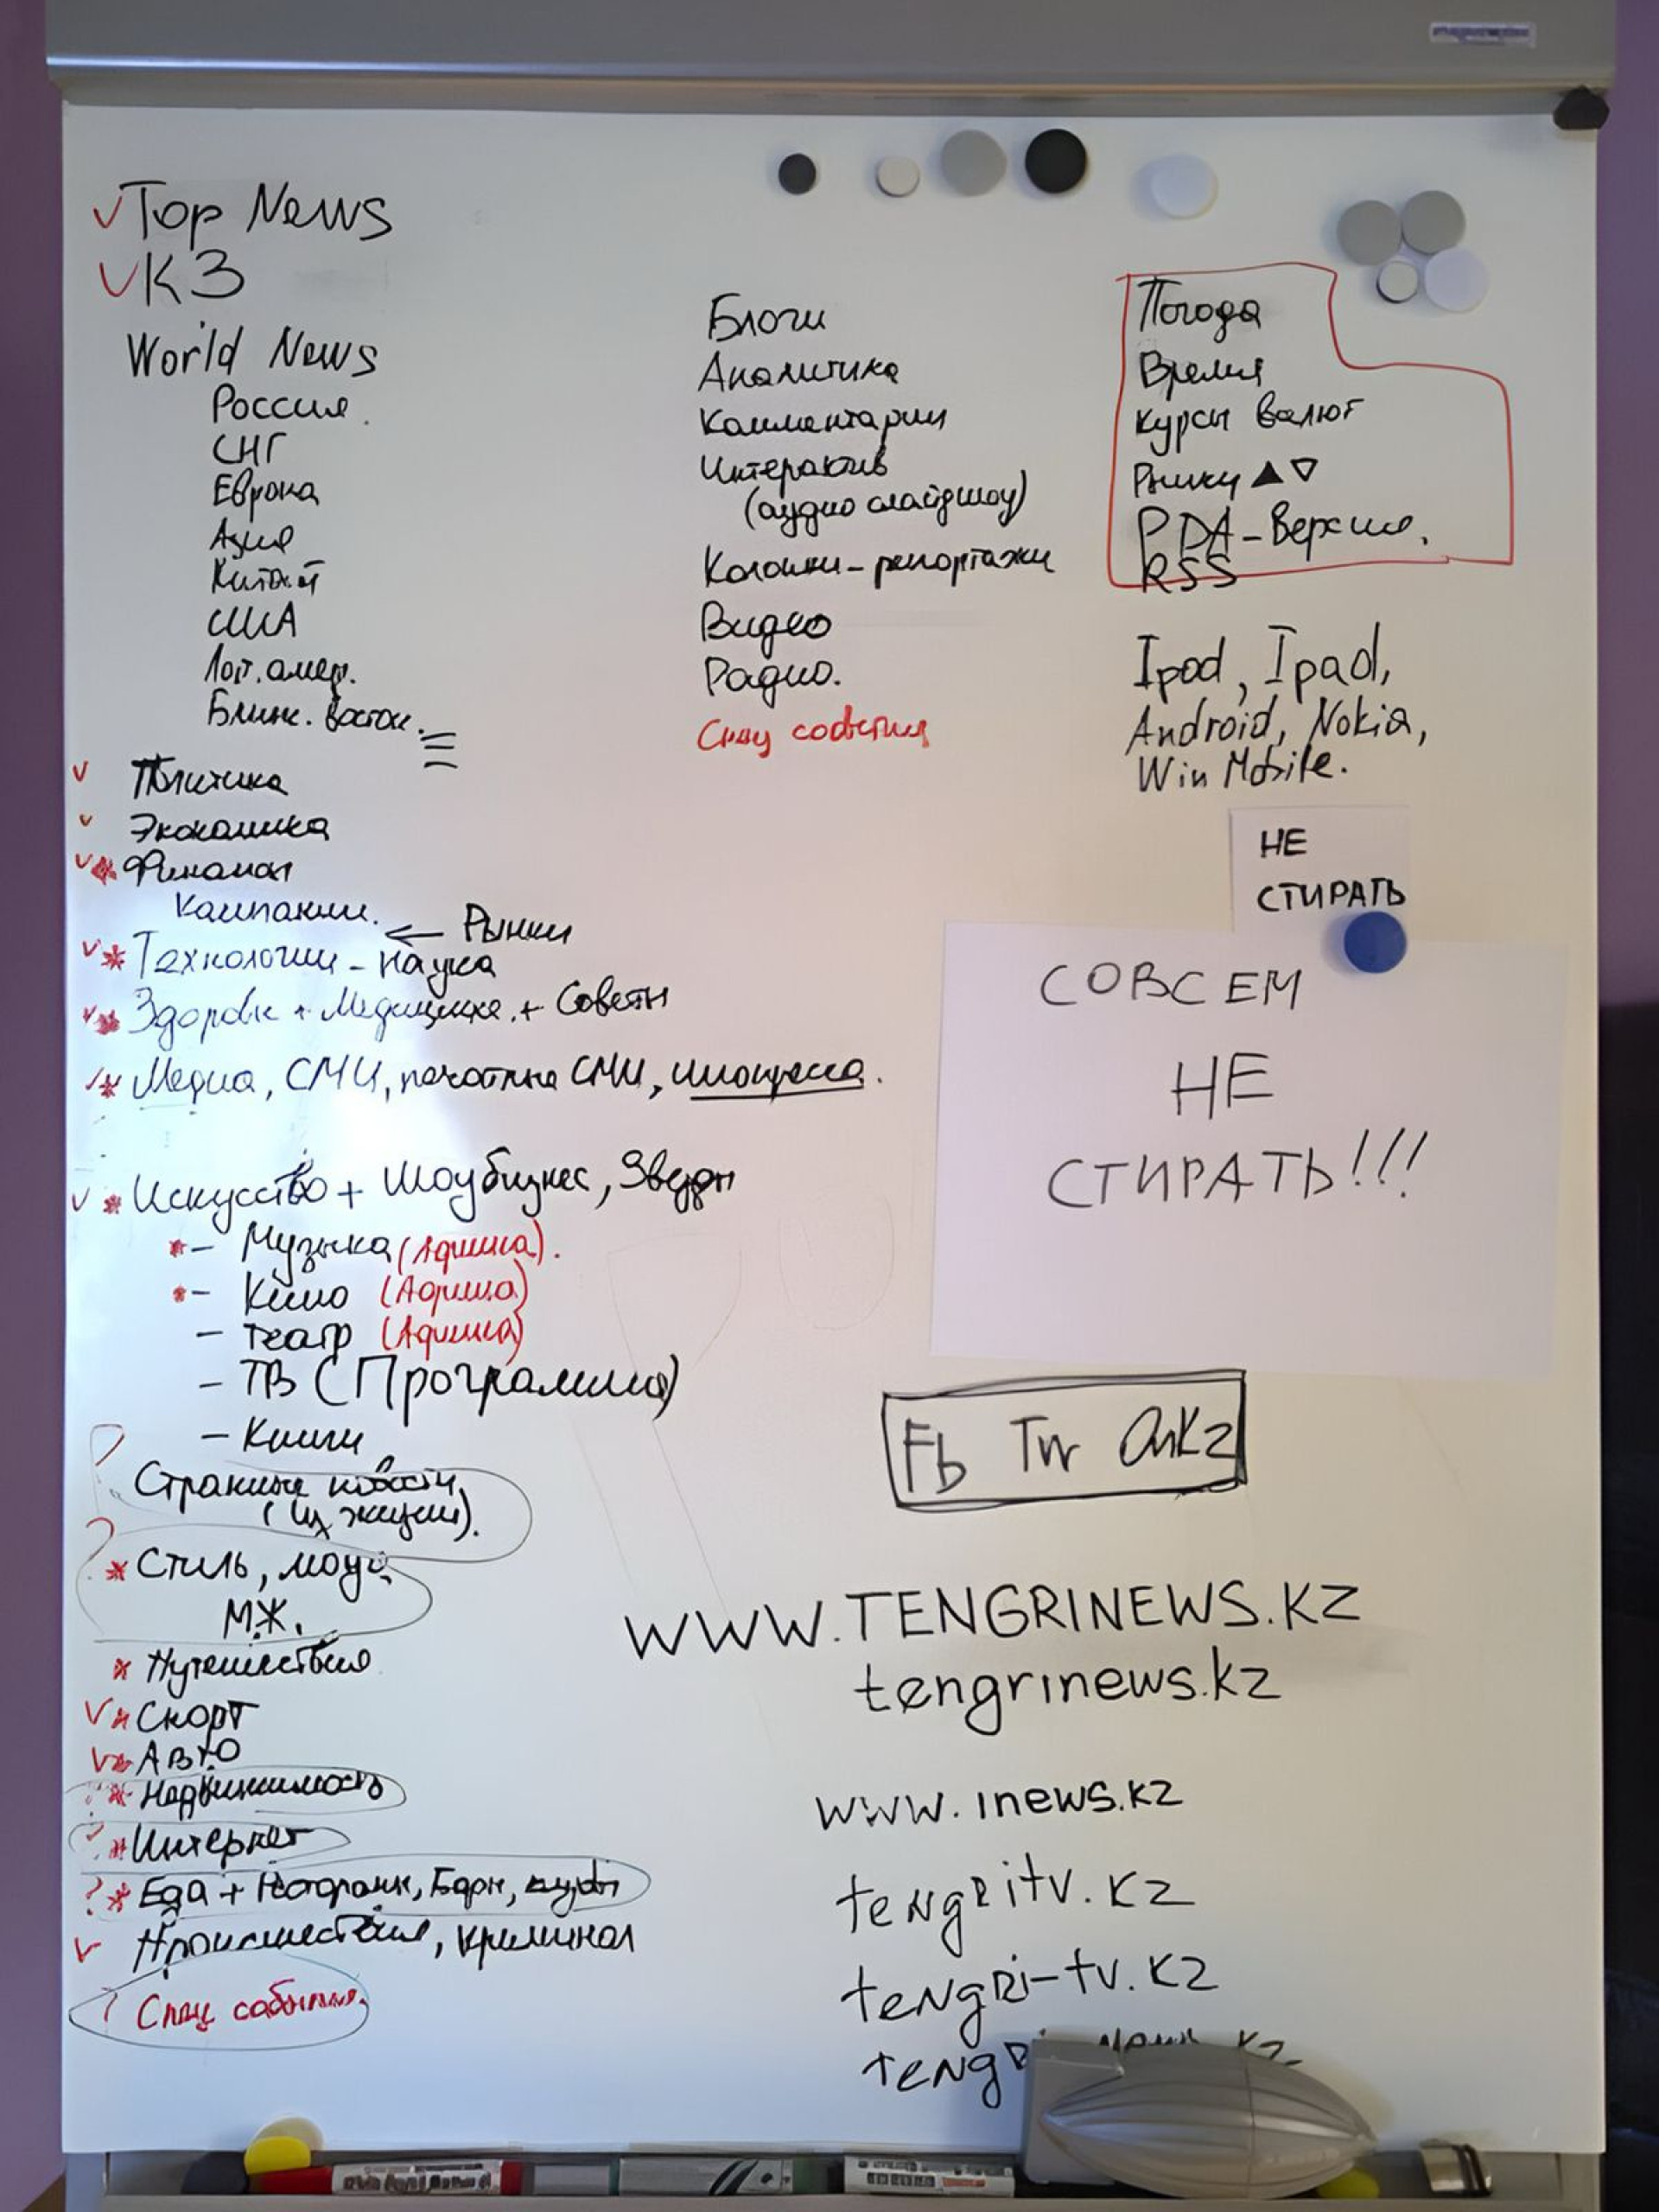 Top News
КЗ
World News
Россия.
СНГ
Европа
Азия
Китай
США
Лат. амер.
Ближ. Восток.
Политика
Экономика
Финансы
Компании.
← Рынки
Технологии - наука
Здоровье + Медицина. + Советы
Медиа, СМИ, печатные СМИ, инопресса.
Искусство + Шоубизнес, Звезды
- Музыка (Афиша).
- Кино (Афиша)
- Театр (Афиша)
- ТВ (Программа)
- Книги
Странные новости
(Их жизни).
Стиль, мода
М.Ж.
Путешествия
Спорт
Авто
Недвижимость
Интернет
? Еда + Рестораны, Бары, клубы
Происшествия, криминал
? Спец события.
Блоги
Аналитика
Комментарии
Интерактив
(аудио слайдшоу)
Колонки - репортажи
Видео
Радио.
Спец события
Погода
Время
Курсы валют
Рынки ▲▽
PDA-Версия.
RSS
Ipod, Ipad,
Android, Nokia,
Win Mobile.
НЕ
СТИРАТЬ
СОВСЕМ
НЕ
СТИРАТЬ!!!
Fb Tw OnKz
WWW.TENGRINEWS.KZ
tengrinews.kz
www.inews.kz
tengritv.kz
tengri-tv.kz
tengri